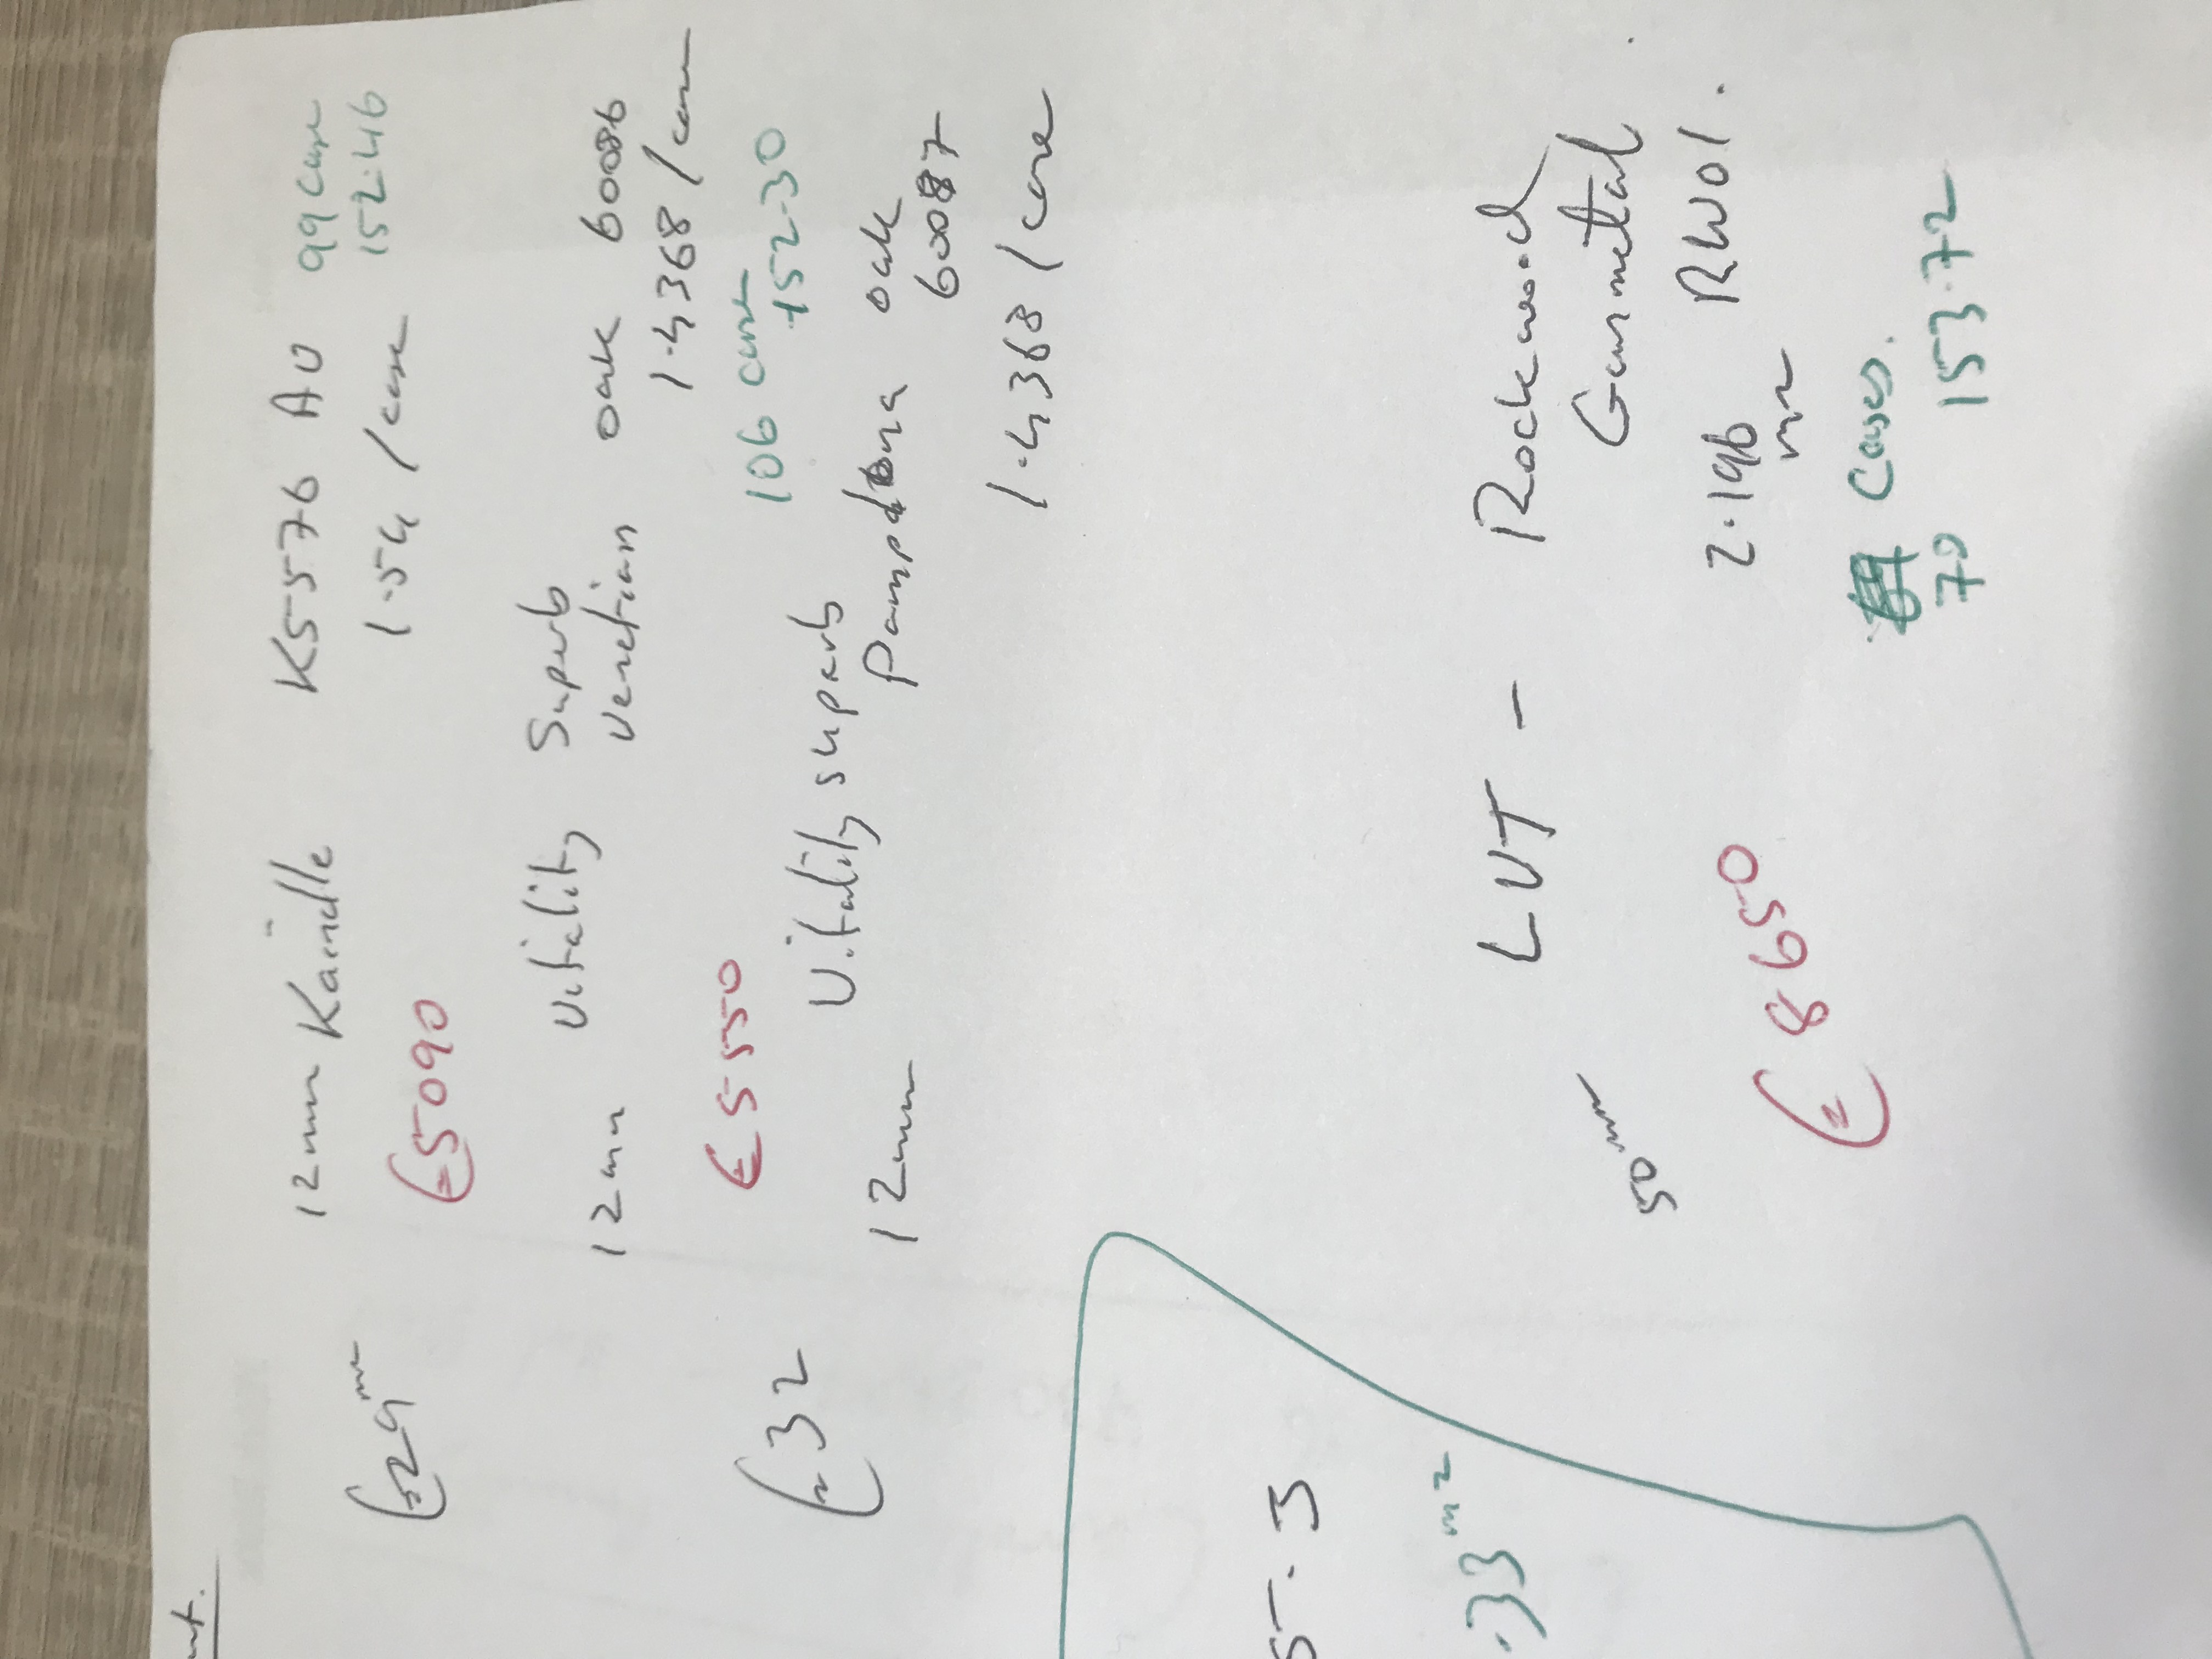 12mm Kaindle K5576 AO 99 case
€29 €5090 1.54 /case 152.46
12mm Vitality Superb
Venetian oak 60086
1.4368 /case
€32 €5550 106 case 152.30
12mm Vitality superb
Pamplona oak
60087
1.4368 /case
5.3
.33 m2
LVT - Rockwood
Gunmetal
50
€8650 2.196 RW01.
cases.
70 153.72